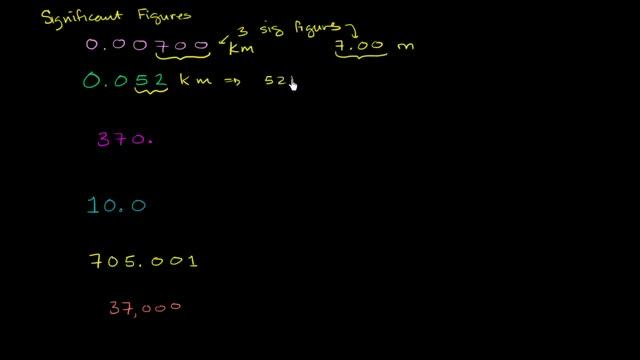 Significant Figures
3 sig figures
0.00700 km 7.00 m
0.052 km ⇒ 52
370.
10.0
705.001
37,000